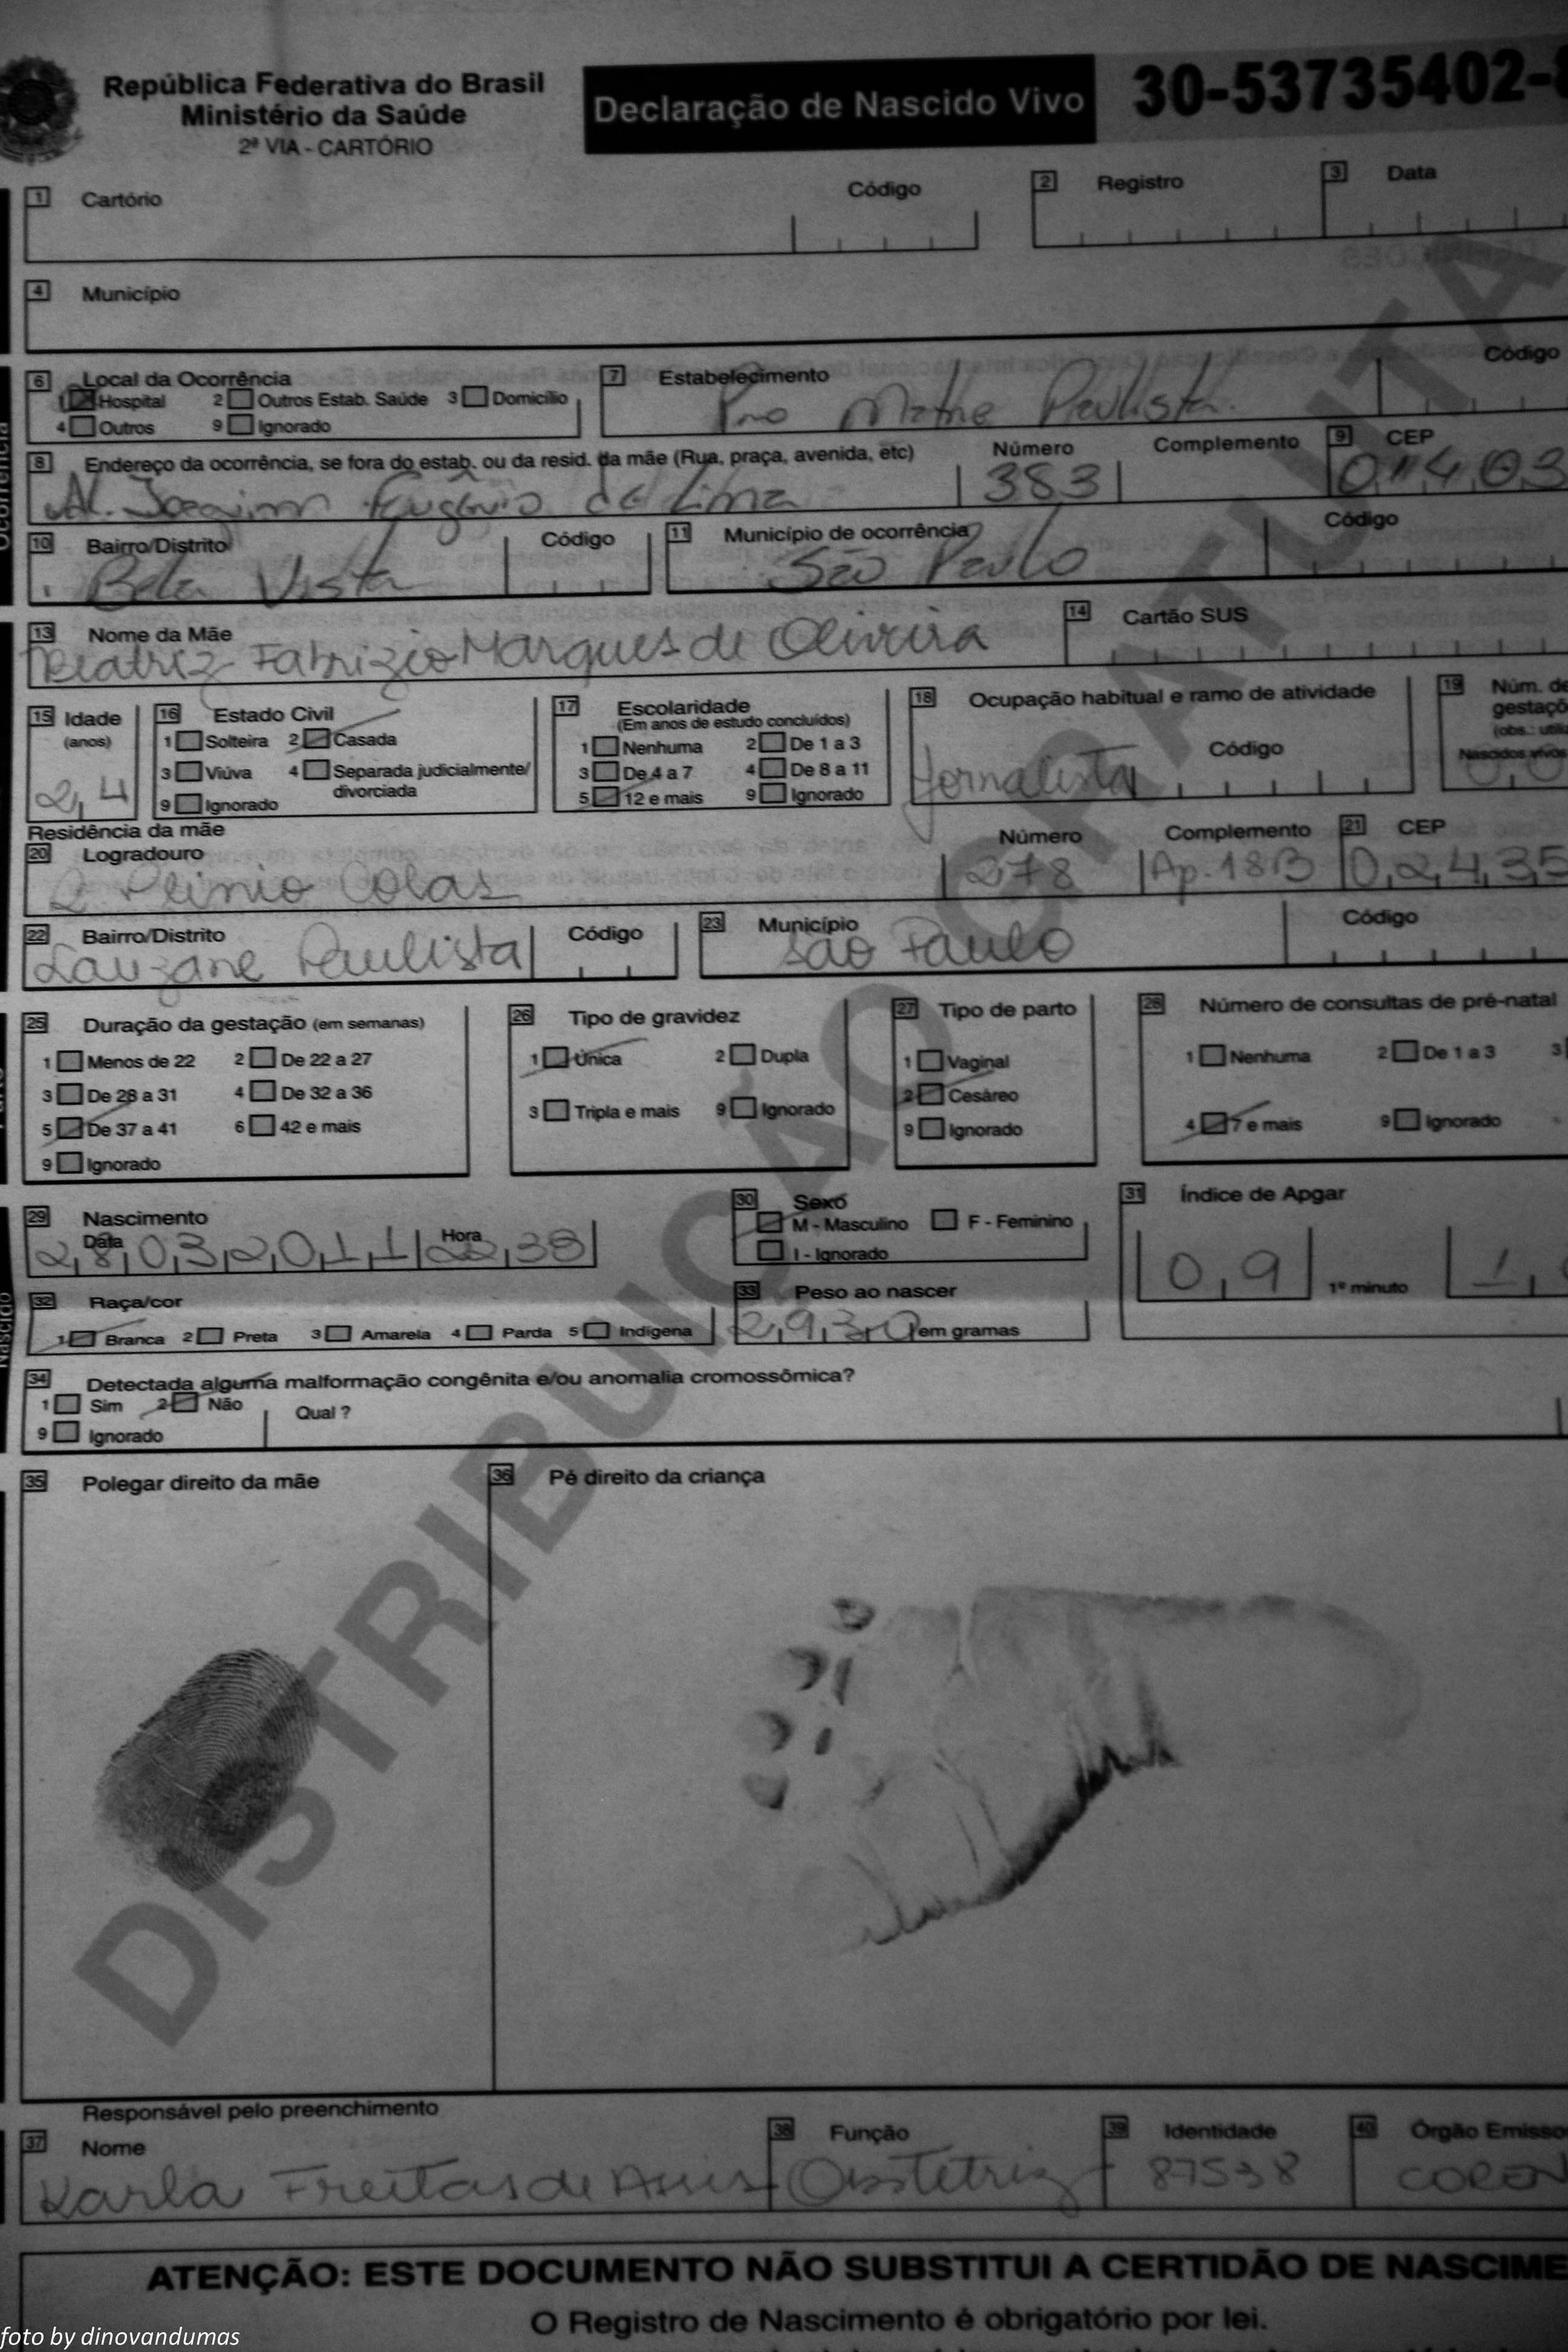 República Federativa do Brasil
Ministério da Saúde
2ª VIA - CARTÓRIO
Declaração de Nascido Vivo
30-53735402-
1 Cartório Código 2 Registro 3 Data
4 Município
6 Local da Ocorrência
1 Hospital 2 Outros Estab. Saúde 3 Domicílio
4 Outros 9 Ignorado
7 Estabelecimento Código
Pro Matre Paulista.
8 Endereço da ocorrência, se fora do estab. ou da resid. da mãe (Rua, praça, avenida, etc) Número Complemento 9 CEP
Al. Joaquim Eugênio de Lima 383 01403
10 Bairro/Distrito Código 11 Município de ocorrência Código
Bela Vista São Paulo
13 Nome da Mãe 14 Cartão SUS
Beatriz Fabrizio Marques de Oliveira
15 Idade
(anos)
24
16 Estado Civil
1 Solteira 2 Casada
3 Viúva 4 Separada judicialmente/
divorciada
9 Ignorado
17 Escolaridade
(Em anos de estudo concluídos)
1 Nenhuma 2 De 1 a 3
3 De 4 a 7 4 De 8 a 11
5 12 e mais 9 Ignorado
18 Ocupação habitual e ramo de atividade
Código
Jornalista
19 Núm. de
(obs.:
Nascidos vivos
Residência da mãe
20 Logradouro Número Complemento 21 CEP
R Plinio Colas 278 Ap. 18B 02435
22 Bairro/Distrito Código 23 Município Código
Lauzane Paulista São Paulo
25 Duração da gestação (em semanas)
1 Menos de 22 2 De 22 a 27
3 De 28 a 31 4 De 32 a 36
5 De 37 a 41 6 42 e mais
9 Ignorado
26 Tipo de gravidez
1 Única 2 Dupla
3 Tripla e mais 9 Ignorado
27 Tipo de parto
1 Vaginal
2 Cesáreo
9 Ignorado
28 Número de consultas de pré-natal
1 Nenhuma 2 De 1 a 3 3
4 7 e mais 9 Ignorado
29 Nascimento
Data Hora
28032011 22,38
30 Sexo
M - Masculino F - Feminino
I - Ignorado
31 Índice de Apgar
09 1º minuto 1
32 Raça/cor
1 Branca 2 Preta 3 Amarela 4 Parda 5 Indígena
33 Peso ao nascer
2930 em gramas
34 Detectada alguma malformação congênita e/ou anomalia cromossômica?
1 Sim 2 Não Qual ?
9 Ignorado
35 Polegar direito da mãe 36 Pé direito da criança
DISTRIBUIÇÃO GRATUITA
Responsável pelo preenchimento
37 Nome 38 Função 39 Identidade 40 Órgão
Karla Freitas de Assis Obstetriz 87538 COREN
ATENÇÃO: ESTE DOCUMENTO NÃO SUBSTITUI A CERTIDÃO DE
O Registro de Nascimento é obrigatório por lei.
foto by dinovandumas